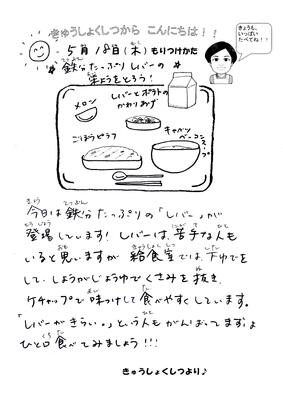 きゅうしょくしつから こんにちは！！
きょうも、
いっぱい
たべてね！！
5月18日（木）もりつけかた
☆鉄分たっぷりレバーの
栄養をとろう！
メロン
レバーとポテトの
かわりあげ
ごぼうピラフ
キャベツ
ベーコン
スープ
今日は鉄分たっぷりの「レバー」が
登場しています！レバーは、苦手な人も
いると思いますが給食室では、下ゆでを
して、しょうがじょうゆでくさみを抜き、
ケチャップで味つけして食べやすくしています。
「レバーがきらい。」という人もがんばってまずは
ひと口食べてみましょう!!!
きゅうしょくしつより♪